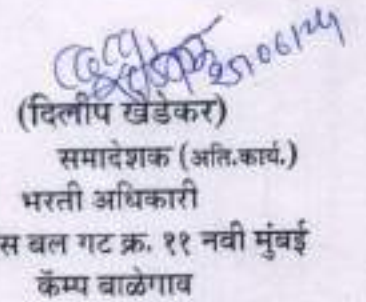 25/06/24
(दिलीप खेडेकर)
समादेशक (अति.कार्य.)
भरती अधिकारी
स बल गट क्र. ११ नवी मुंबई
कॅम्प बाळेगाव